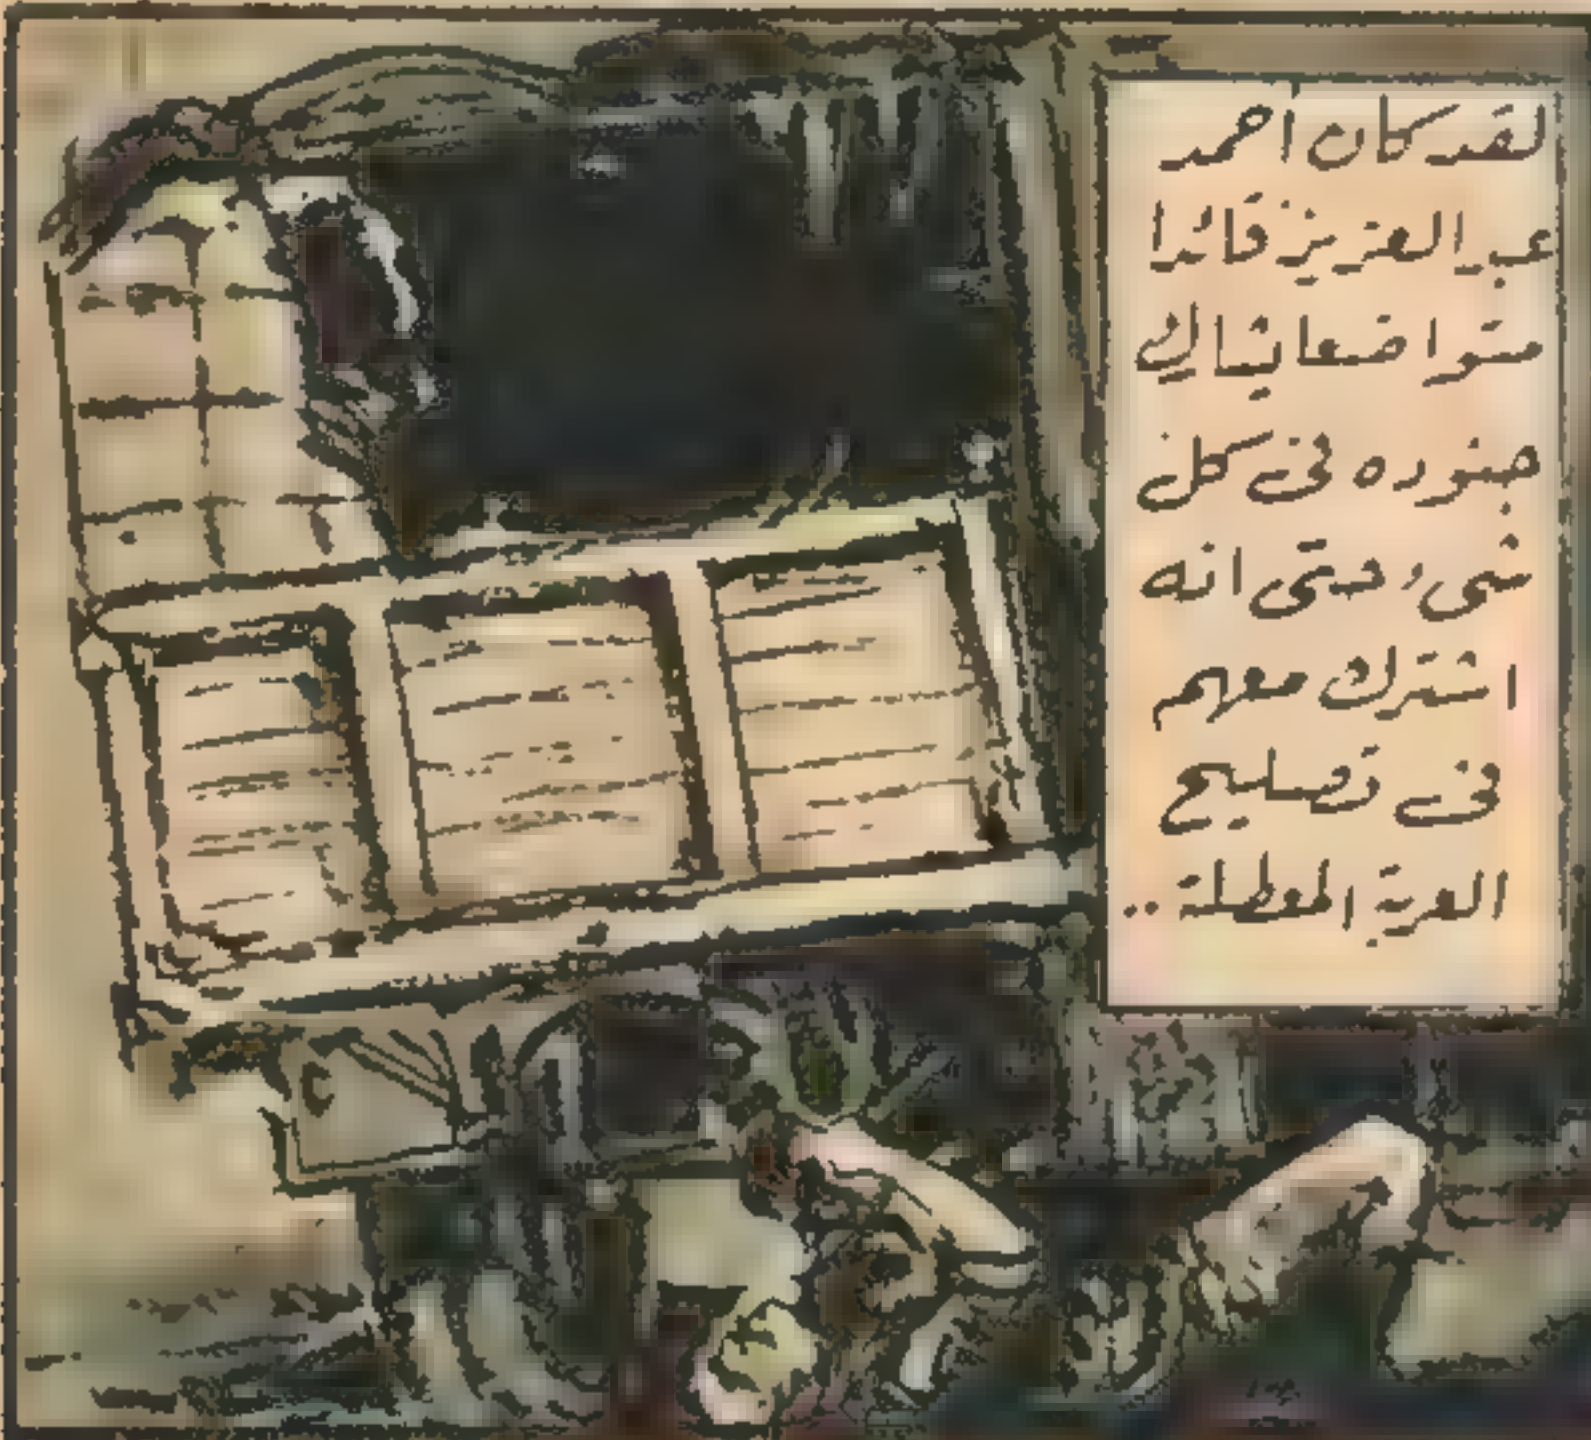 لقد كان أحمد
عبد العزيز قائدا
متواضعا يشارك
جنوده فى كل
شىء حتى انه
اشترك معهم
فى تصليح
العربة المعطلة ..